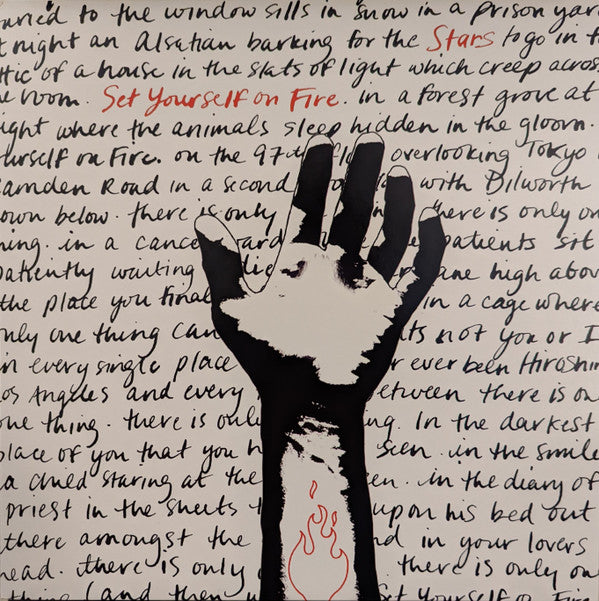 to the window sills in snow in a prison yar
night an Alsatian barking for the Stars to go in t
ttic of a house in the slats of light which creep acros
e room. Set Yourself on Fire. in a forest grove at
ight where the animals sleep hidden in the gloom.
ourself on Fire. on the 97th fl overlooking Tokyo
Camden Road in a second with Dilworth
own below. there is only there is only on
hing. in a cance ard patients sit
patiently waiting die ane high abov
the place you final in a cage where
only one thing can its not you or I
in every single place r ever been Hiroshim
os Angeles and every etween there is on
one thing. there is onl ng. In the darkest
place of you that you h seen. in the smile
a child staring at the en. in the diary of
priest in the sheets t upon his bed out
there amongst the nd in your lovers
head. there is only there is only on
thing (and then Set Yourself on Fire